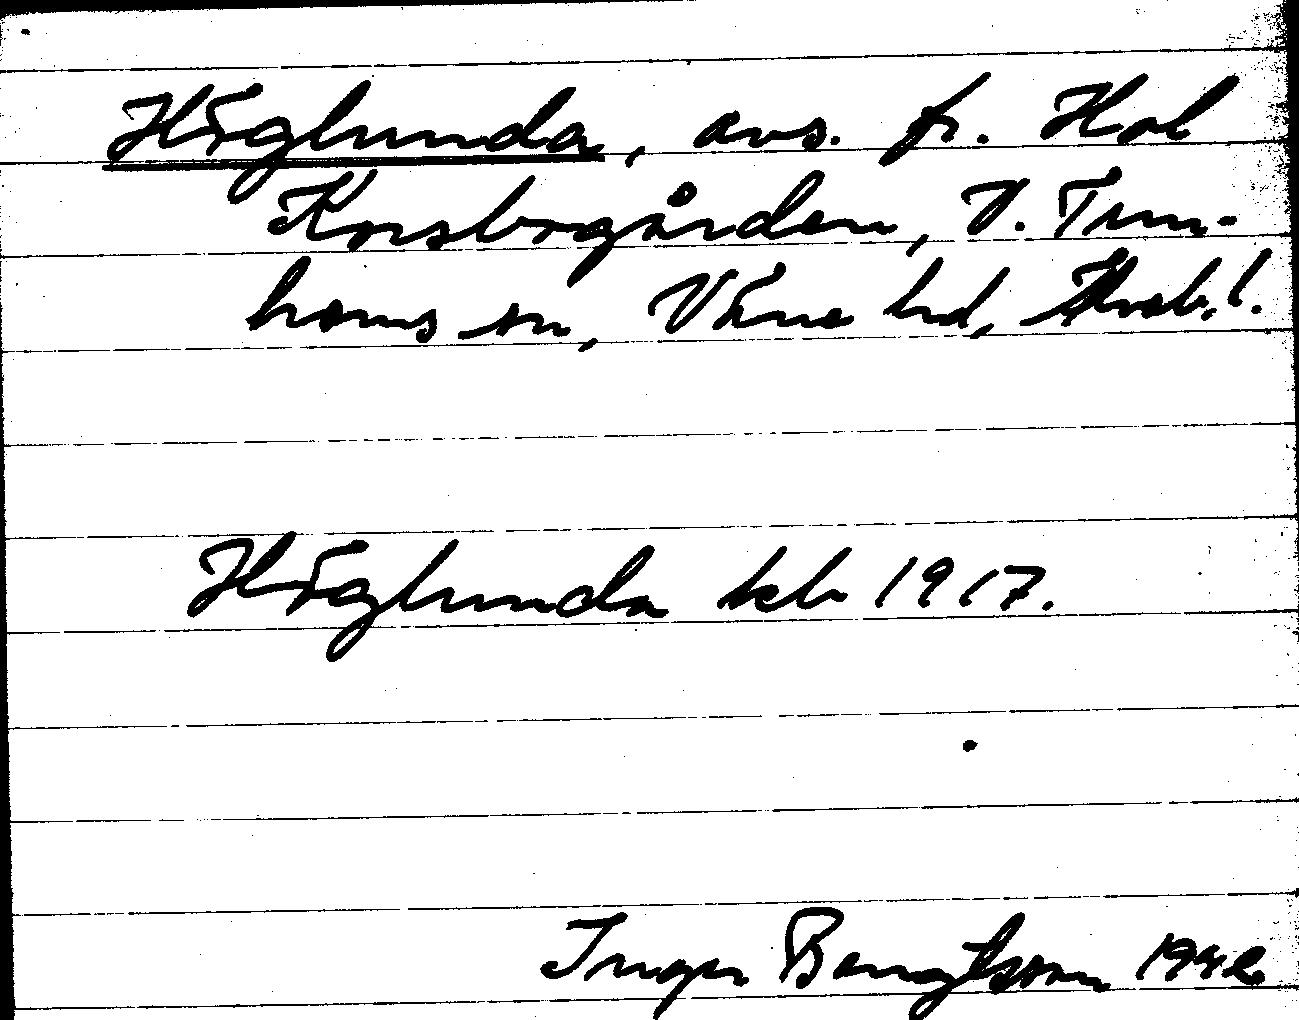 Höglunda, avs. fr. Hol
Korsbogården, V. Tun-
hems sn, Väne hd, Älvsb. l.
Höglunda kb 1917.
Inger Bengtsson 1942